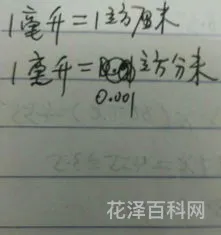 1毫升=1立方厘米
1毫升=立方分米
0.001
花泽百科网